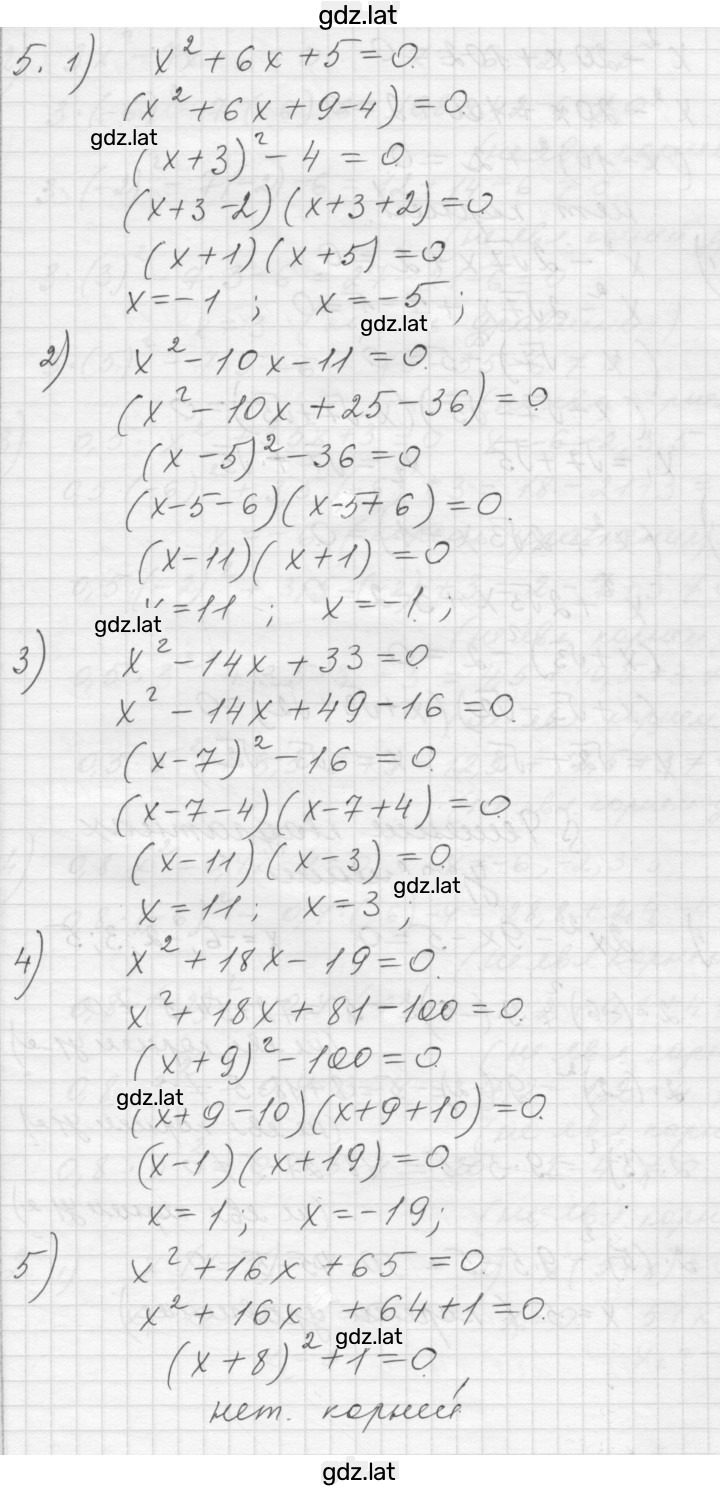 gdz.lat
5. 1) x² + 6x + 5 = 0.
(x² + 6x + 9 - 4) = 0.
gdz.lat
(x+3)² - 4 = 0
(x+3-2)(x+3+2) = 0
(x+1)(x+5) = 0
x = -1 ; x = -5 ;
gdz.lat
2) x² - 10x - 11 = 0.
(x² - 10x + 25 - 36) = 0
(x-5)² - 36 = 0
(x-5-6)(x-5+6) = 0.
(x-11)(x+1) = 0
x = 11 ; x = -1 ;
gdz.lat
3) x² - 14x + 33 = 0
x² - 14x + 49 - 16 = 0.
(x-7)² - 16 = 0
(x-7-4)(x-7+4) = 0
(x-11)(x-3) = 0
gdz.lat
x = 11 ; x = 3 ;
4) x² + 18x - 19 = 0.
x² + 18x + 81 - 100 = 0.
(x+9)² - 100 = 0
gdz.lat
(x+9-10)(x+9+10) = 0.
(x-1)(x+19) = 0
x = 1 ; x = -19 ;
5) x² + 16x + 65 = 0.
x² + 16x + 64 + 1 = 0.
gdz.lat
(x+8)² + 1 = 0,
нет. корней
gdz.lat